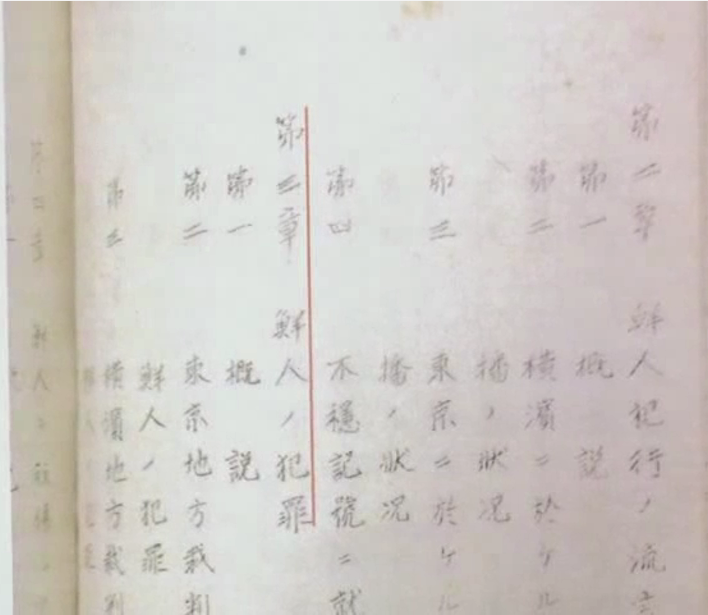 第二章　鮮人犯行ノ流
第一　概説
第二　横濱ニ於ケル
播ノ狀況
第三　東京ニ於ケル
播ノ狀況
第四　不穩記號ニ就
第三章　鮮人ノ犯罪
第一　概説
第二　東京地方裁判
鮮人ノ犯罪
第三　橫濱地方裁判
第四章　鮮人